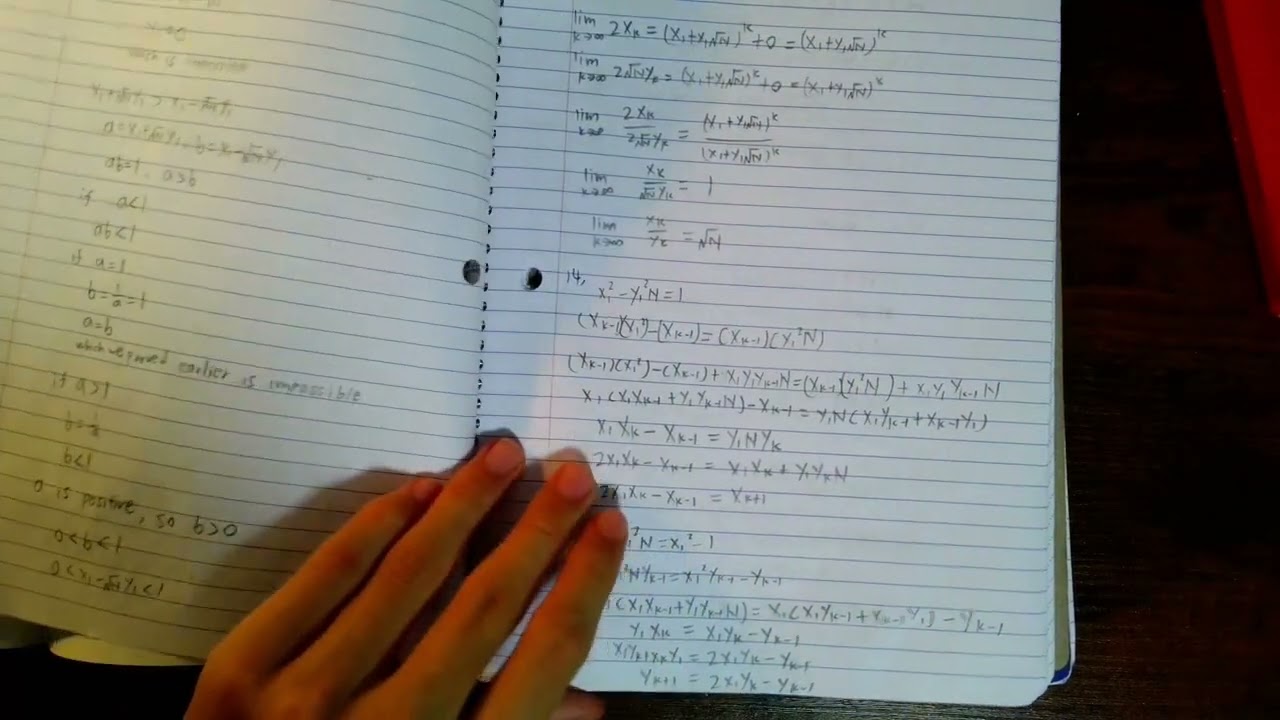 x₁+√N y₁ > x₁-√N y₁
a=x₁+√N y₁, b=x₁-√N y₁
ab=1, a>b
if a<1
ab<1
if a=1
b=1/a=1
a=b
which we proved earlier is impossible
if a>1
b=1/a
b<1
a is positive, so b>0
0<b<1
0<x₁-√N y₁<1
lim k→∞ 2xₖ = (x₁+y₁√N)ᵏ+0 = (x₁+y₁√N)ᵏ
lim k→∞ 2√N yₖ = (x₁+y₁√N)ᵏ+0 = (x₁+y₁√N)ᵏ
lim k→∞ 2xₖ/2√N yₖ = (x₁+y₁√N)ᵏ/(x₁+y₁√N)ᵏ
lim k→∞ xₖ/√N yₖ = 1
lim k→∞ xₖ/yₖ = √N
14,
x₁²-y₁²N=1
(xₖ₋₁)(x₁²)-(xₖ₋₁)=(xₖ₋₁)(y₁²N)
(xₖ₋₁)(x₁²)-(xₖ₋₁)+x₁y₁yₖ₋₁N=(xₖ₋₁)(y₁²N)+x₁y₁yₖ₋₁N
x₁(x₁xₖ₋₁+y₁yₖ₋₁N)-xₖ₋₁=y₁N(x₁yₖ₋₁+xₖ₋₁y₁)
x₁xₖ-xₖ₋₁=y₁Nyₖ
2x₁xₖ-xₖ₋₁=x₁xₖ+y₁yₖN
2x₁xₖ-xₖ₋₁=xₖ₊₁
²N=x₁²-1
²Nyₖ₋₁=x₁²yₖ₋₁-yₖ₋₁
(x₁xₖ₋₁+y₁yₖ₋₁N)=x₁(x₁yₖ₋₁+xₖ₋₁y₁)-yₖ₋₁
y₁xₖ=x₁yₖ-yₖ₋₁
x₁yₖ+xₖy₁=2x₁yₖ-yₖ₋₁
yₖ₊₁=2x₁yₖ-yₖ₋₁